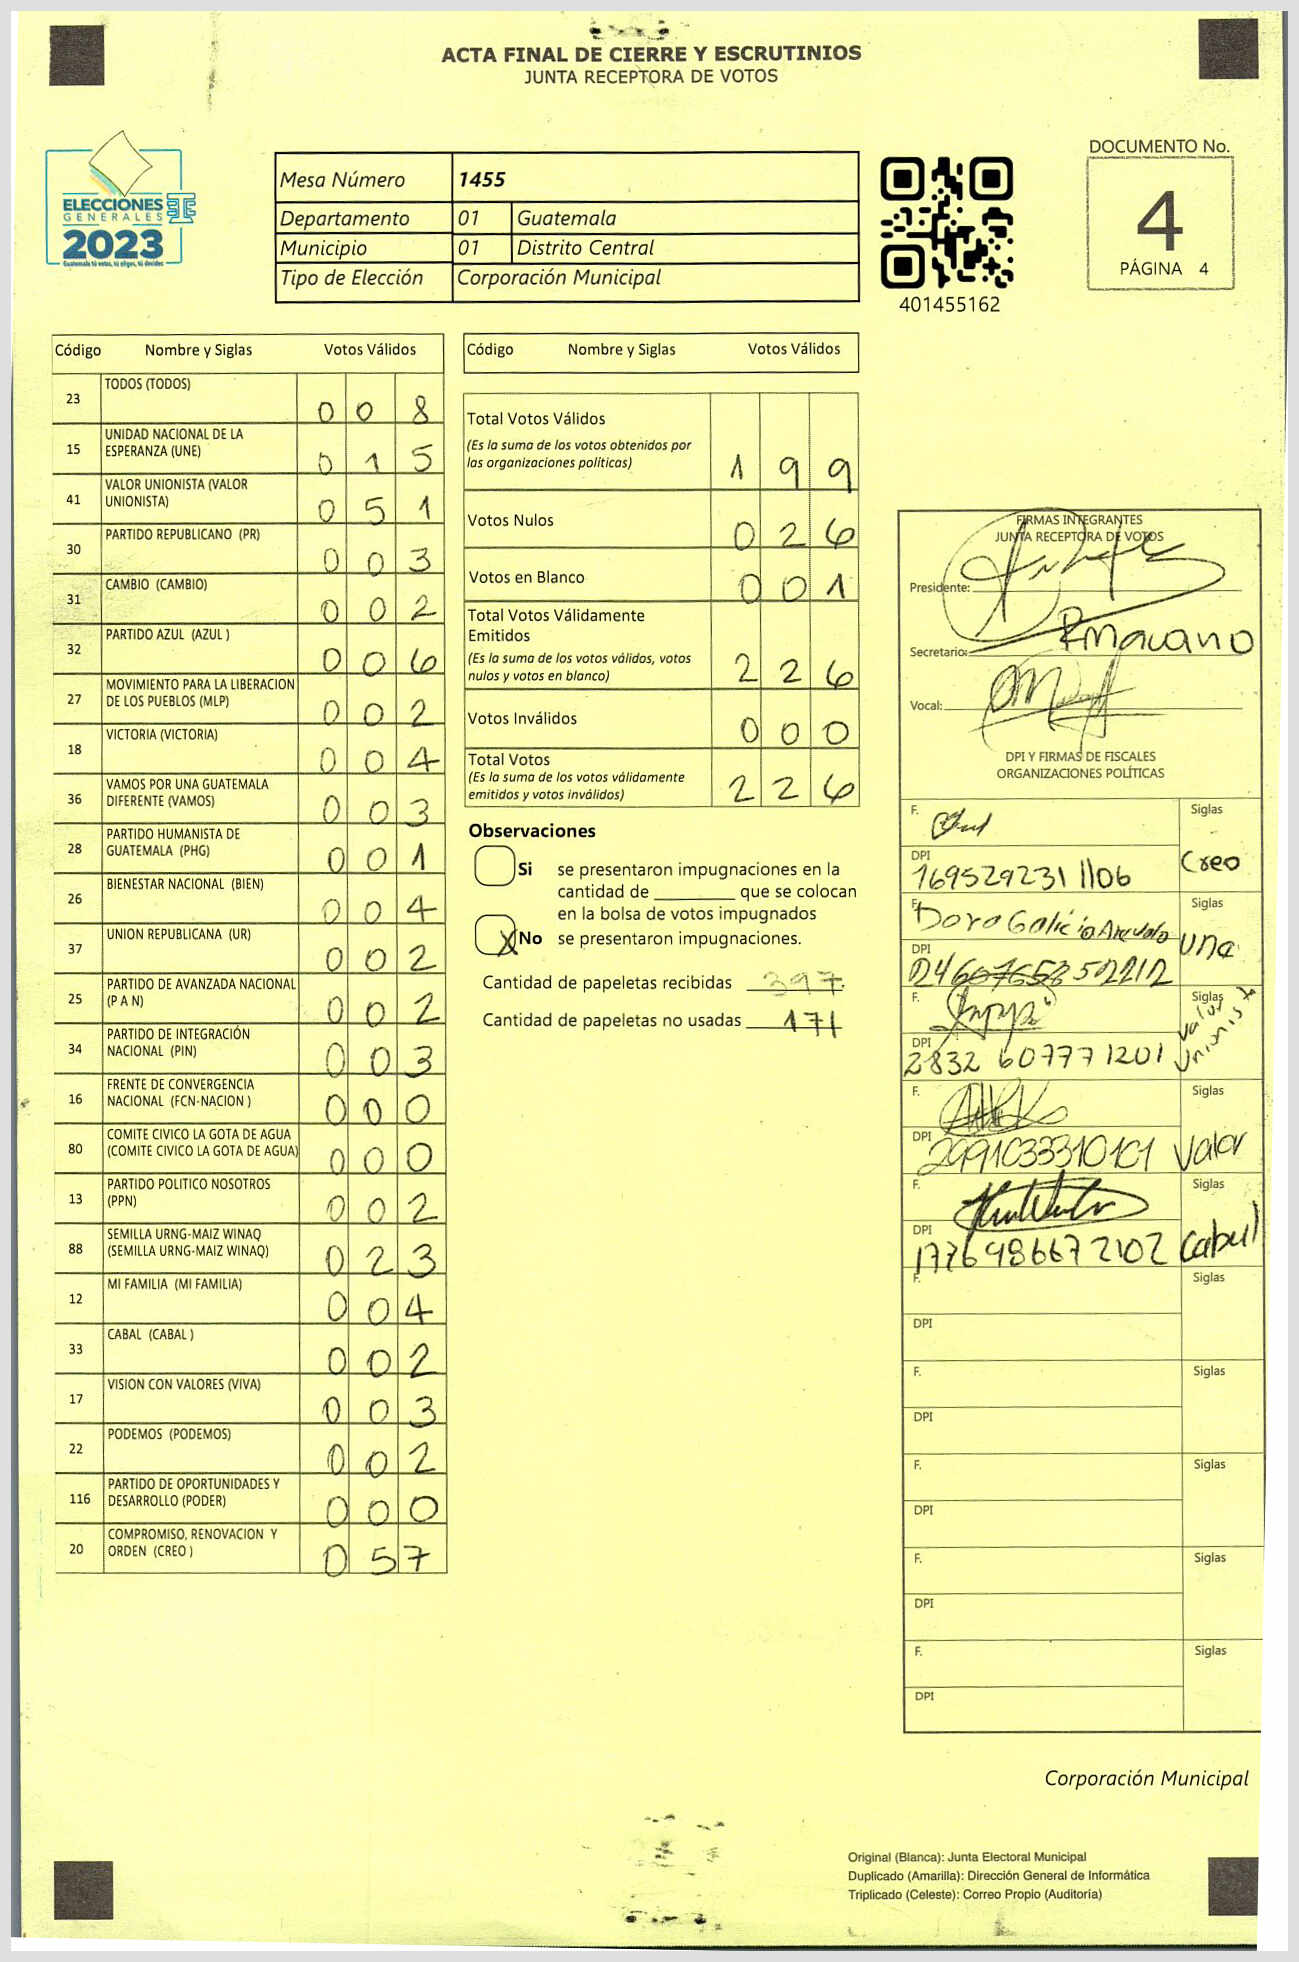 ACTA FINAL DE CIERRE Y ESCRUTINIOS
JUNTA RECEPTORA DE VOTOS
ELECCIONES
GENERALES
2023
Guatemala tú votas, tú eliges, tú decides
Mesa Número 1455
Departamento 01 Guatemala
Municipio 01 Distrito Central
Tipo de Elección Corporación Municipal
401455162
DOCUMENTO No.
4
PÁGINA 4
Código Nombre y Siglas Votos Válidos
23 TODOS (TODOS) 0 0 8
15 UNIDAD NACIONAL DE LA
ESPERANZA (UNE) 0 1 5
41 VALOR UNIONISTA (VALOR
UNIONISTA) 0 5 1
30 PARTIDO REPUBLICANO (PR) 0 0 3
31 CAMBIO (CAMBIO) 0 0 2
32 PARTIDO AZUL (AZUL ) 0 0 6
27 MOVIMIENTO PARA LA LIBERACION
DE LOS PUEBLOS (MLP) 0 0 2
18 VICTORIA (VICTORIA) 0 0 4
36 VAMOS POR UNA GUATEMALA
DIFERENTE (VAMOS) 0 0 3
28 PARTIDO HUMANISTA DE
GUATEMALA (PHG) 0 0 1
26 BIENESTAR NACIONAL (BIEN) 0 0 4
37 UNION REPUBLICANA (UR) 0 0 2
25 PARTIDO DE AVANZADA NACIONAL
(P A N) 0 0 2
34 PARTIDO DE INTEGRACIÓN
NACIONAL (PIN) 0 0 3
16 FRENTE DE CONVERGENCIA
NACIONAL (FCN-NACION ) 0 0 0
80 COMITE CIVICO LA GOTA DE AGUA
(COMITE CIVICO LA GOTA DE AGUA) 0 0 0
13 PARTIDO POLITICO NOSOTROS
(PPN) 0 0 2
88 SEMILLA URNG-MAIZ WINAQ
(SEMILLA URNG-MAIZ WINAQ) 0 2 3
12 MI FAMILIA (MI FAMILIA) 0 0 4
33 CABAL (CABAL ) 0 0 2
17 VISION CON VALORES (VIVA) 0 0 3
22 PODEMOS (PODEMOS) 0 0 2
116 PARTIDO DE OPORTUNIDADES Y
DESARROLLO (PODER) 0 0 0
20 COMPROMISO, RENOVACION Y
ORDEN (CREO ) 0 5 7
Código Nombre y Siglas Votos Válidos
Total Votos Válidos
(Es la suma de los votos obtenidos por
las organizaciones políticas) 1 9 9
Votos Nulos 0 2 6
Votos en Blanco 0 0 1
Total Votos Válidamente
Emitidos
(Es la suma de los votos válidos, votos
nulos y votos en blanco) 2 2 6
Votos Inválidos 0 0 0
Total Votos
(Es la suma de los votos válidamente
emitidos y votos inválidos) 2 2 6
Observaciones
Si se presentaron impugnaciones en la
cantidad de ________ que se colocan
en la bolsa de votos impugnados
X No se presentaron impugnaciones.
Cantidad de papeletas recibidas 397
Cantidad de papeletas no usadas 171
FIRMAS INTEGRANTES
JUNTA RECEPTORA DE VOTOS
Presidente:
Secretario:
Vocal:
DPI Y FIRMAS DE FISCALES
ORGANIZACIONES POLÍTICAS
F. Siglas
DPI Creo
169529231 1106
F. Dora Galicio Arevalo Siglas
DPI Una
F. Siglas
Valor Unionista
DPI
2832 60777 1201
F. Siglas
DPI
2991033310101 Valor
F. Siglas
DPI
1776986672102 Cabal
F. Siglas
DPI
F. Siglas
DPI
F. Siglas
DPI
F. Siglas
DPI
F. Siglas
DPI
Corporación Municipal
Original (Blanca): Junta Electoral Municipal
Duplicado (Amarilla): Dirección General de Informática
Triplicado (Celeste): Correo Propio (Auditoría)